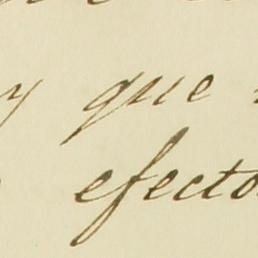 y que
efecto